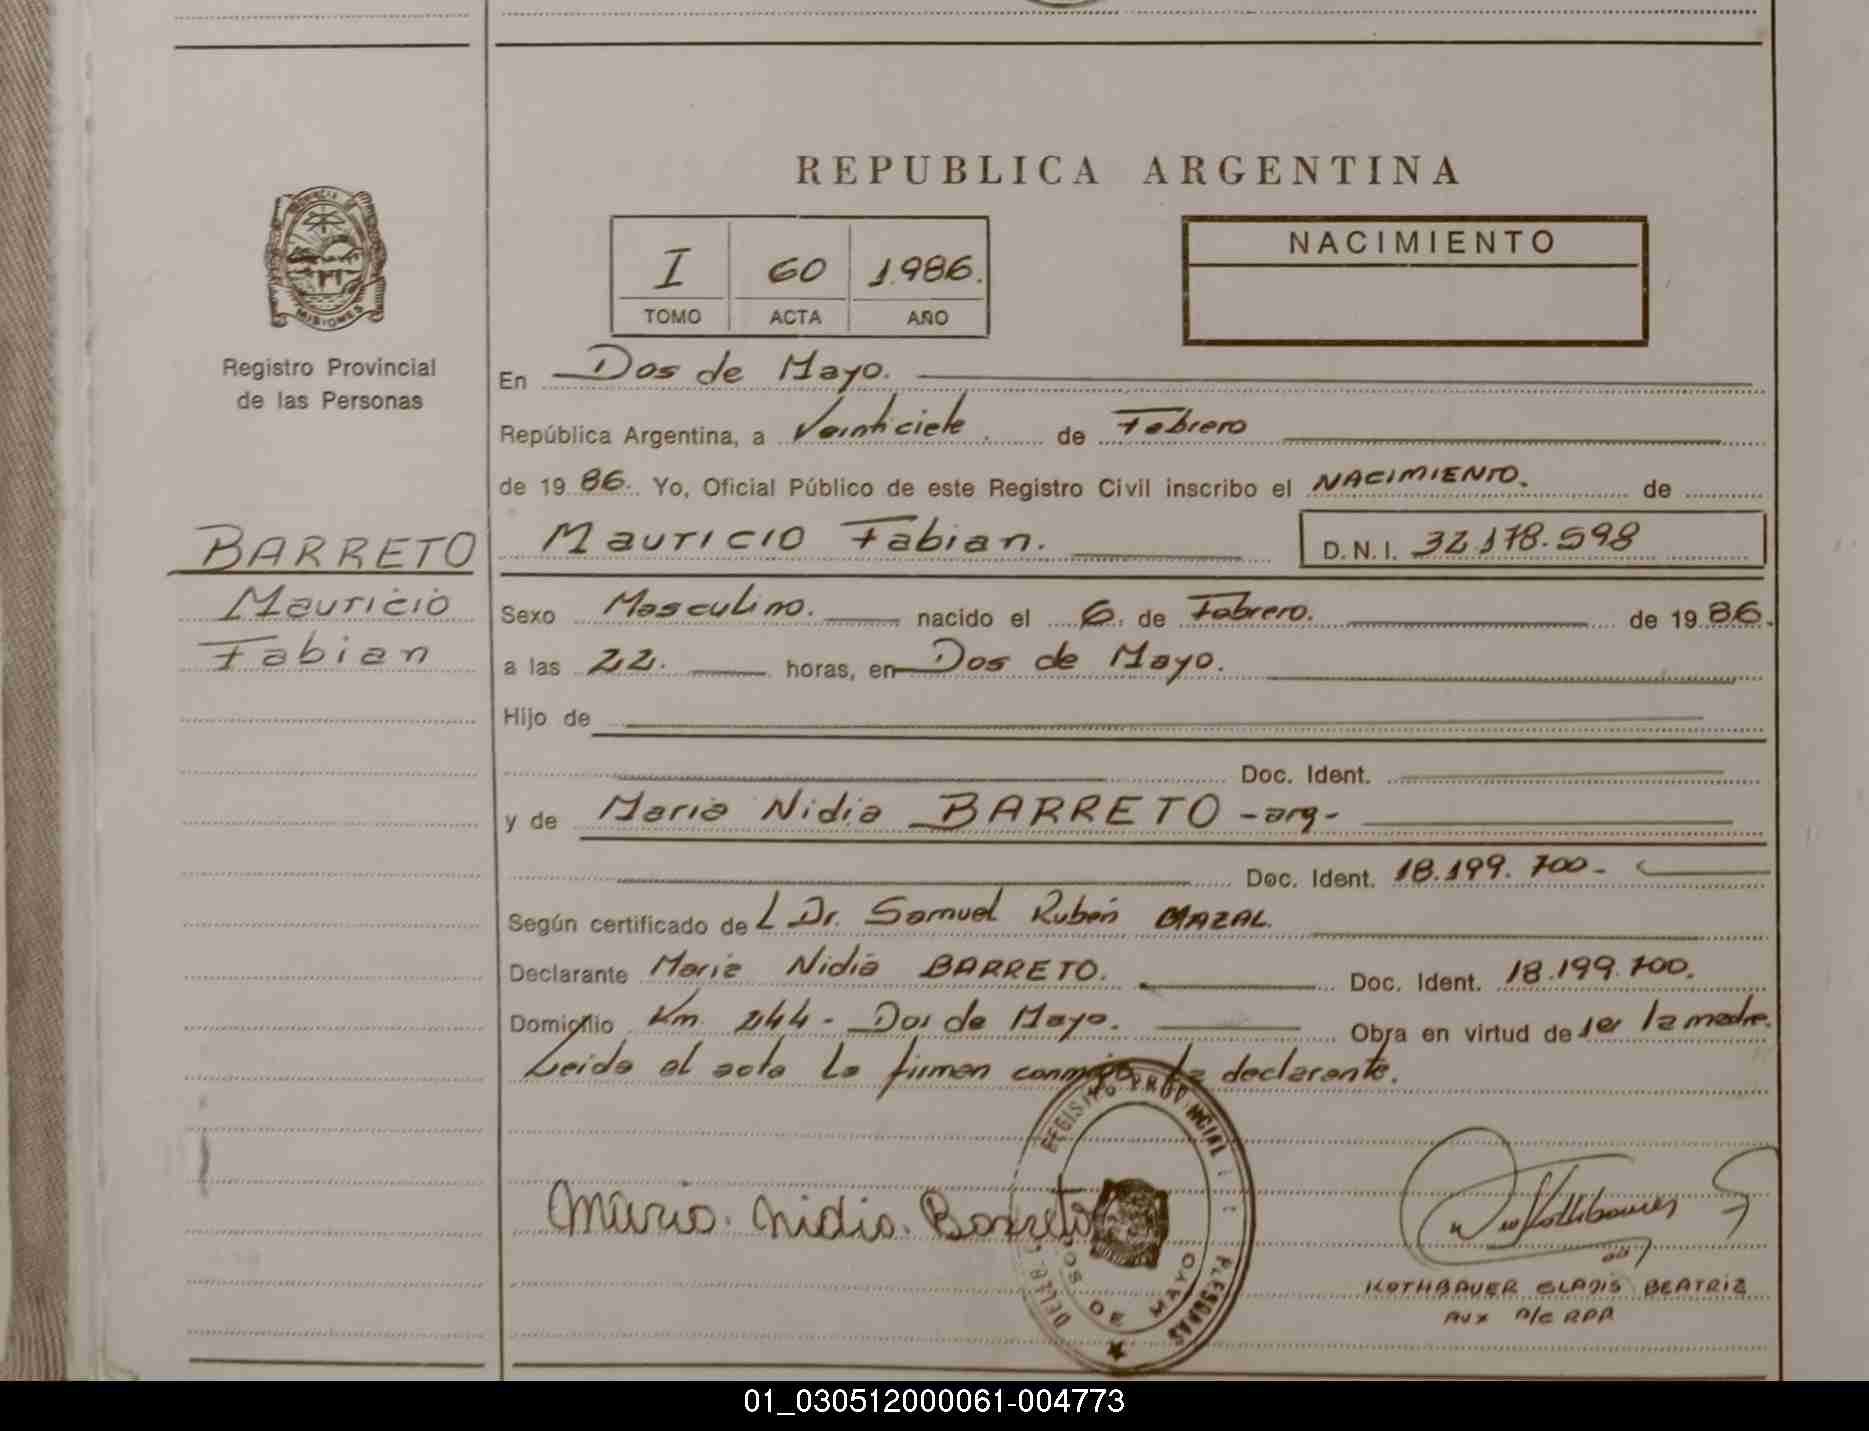 REPUBLICA ARGENTINA
PROVINCIA
MISIONES
Registro Provincial
de las Personas
I 60 1.986.
TOMO ACTA AÑO
NACIMIENTO
En Dos de Mayo.
República Argentina, a Veinticiete de Febrero
de 1986. Yo, Oficial Público de este Registro Civil inscribo el NACIMIENTO. de
Mauricio Fabian. D.N.I. 32.178.598
BARRETO
Mauricio
Fabian
Sexo Masculino. nacido el 6. de Febrero. de 1986.
a las 22. horas, en Dos de Mayo.
Hijo de
Doc. Ident.
y de Maria Nidia BARRETO -arg-
Doc. Ident. 18.199.700-
Según certificado del Dr. Samuel Rubén MAZAL.
Declarante Maria Nidia BARRETO. Doc. Ident. 18.199.700.
Domicilio Km. 244 - Dos de Mayo. Obra en virtud de ser la madre.
Leida el acta la firman conmigo la declarante.
REGISTRO PROVINCIAL
DOS DE MAYO
Maria. Nidia. Barreto
KOTHBAUER GLADIS BEATRIZ
AUX A/C RPP
01_030512000061-004773